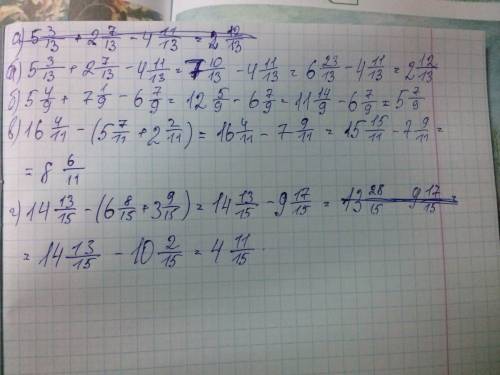 а) 5 3/13 + 2 7/13 - 4 11/13 = 2 12/13
а) 5 3/13 + 2 7/13 - 4 11/13 = 7 10/13 - 4 11/13 = 6 23/13 - 4 11/13 = 2 12/13
б) 5 4/9 + 7 1/9 - 6 7/9 = 12 5/9 - 6 7/9 = 11 14/9 - 6 7/9 = 5 7/9
в) 16 4/11 - (5 7/11 + 2 2/11) = 16 4/11 - 7 9/11 = 15 15/11 - 7 9/11 =
= 8 6/11
г) 14 13/15 - (6 8/15 + 3 9/15) = 14 13/15 - 9 17/15 = 13 28/15 - 9 17/15 =
= 14 13/15 - 10 2/15 = 4 11/15